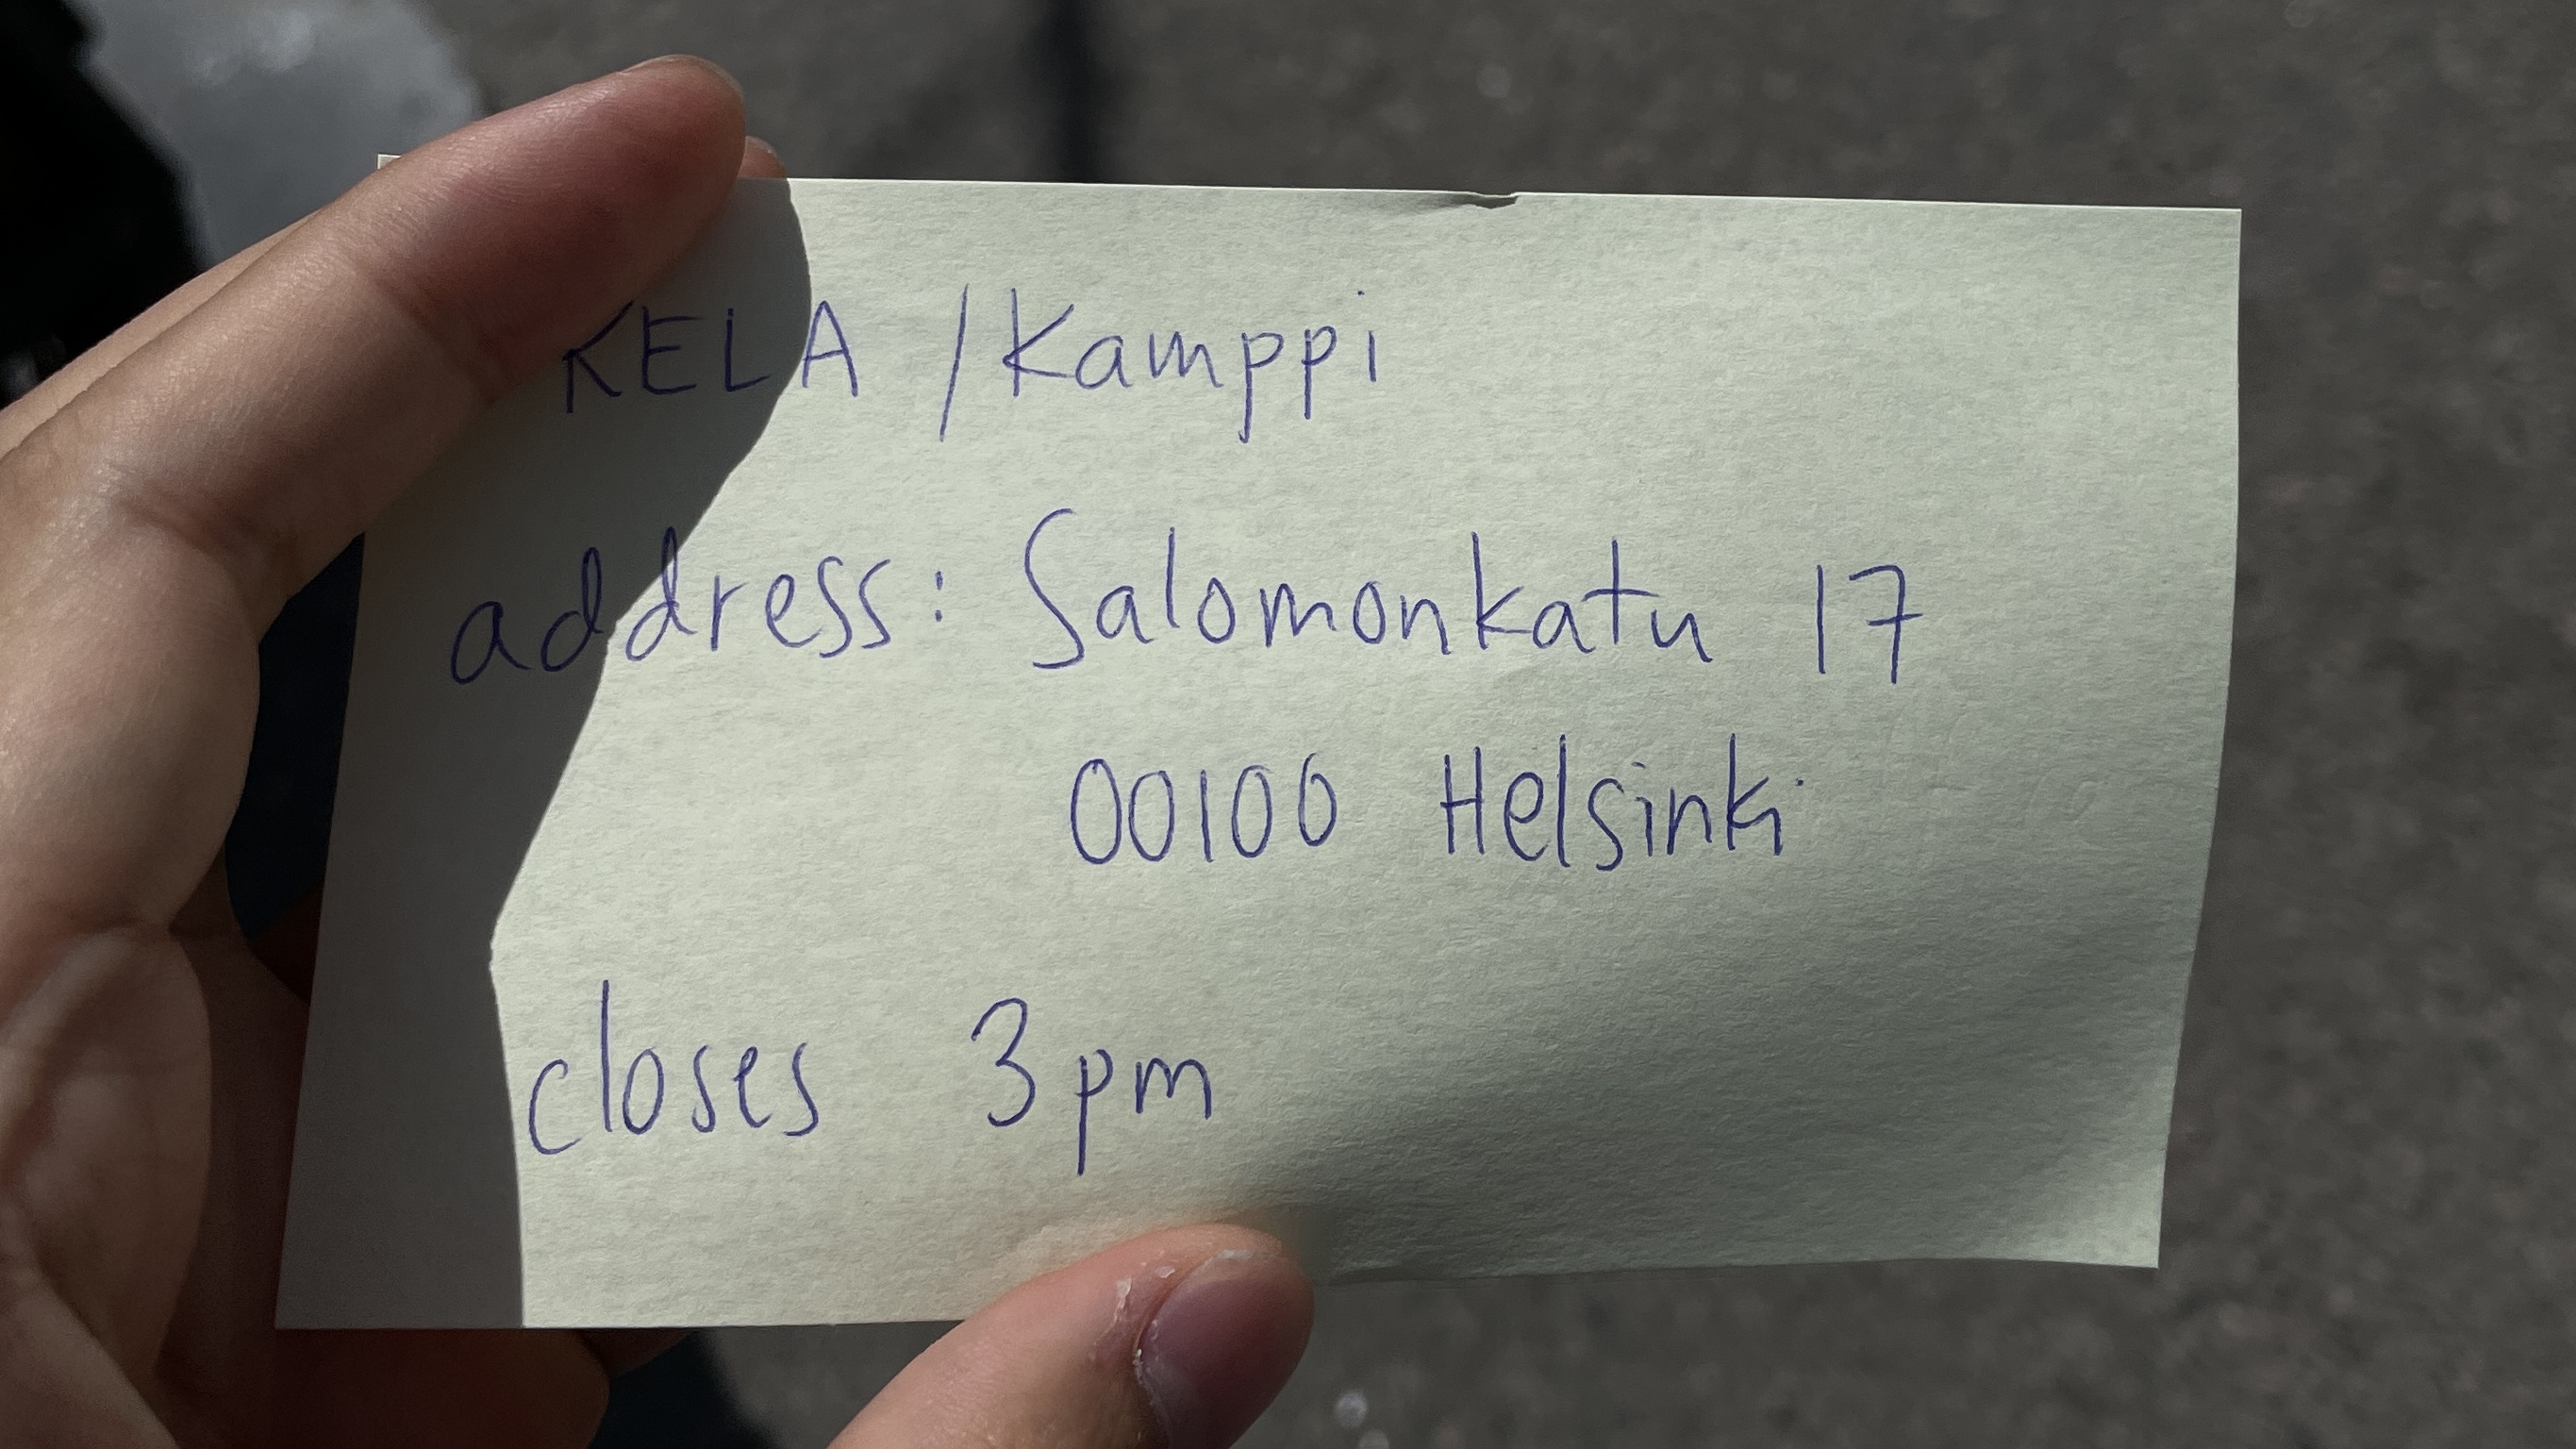 KELA / Kamppi
address: Salomonkatu 17
00100 Helsinki
closes 3pm